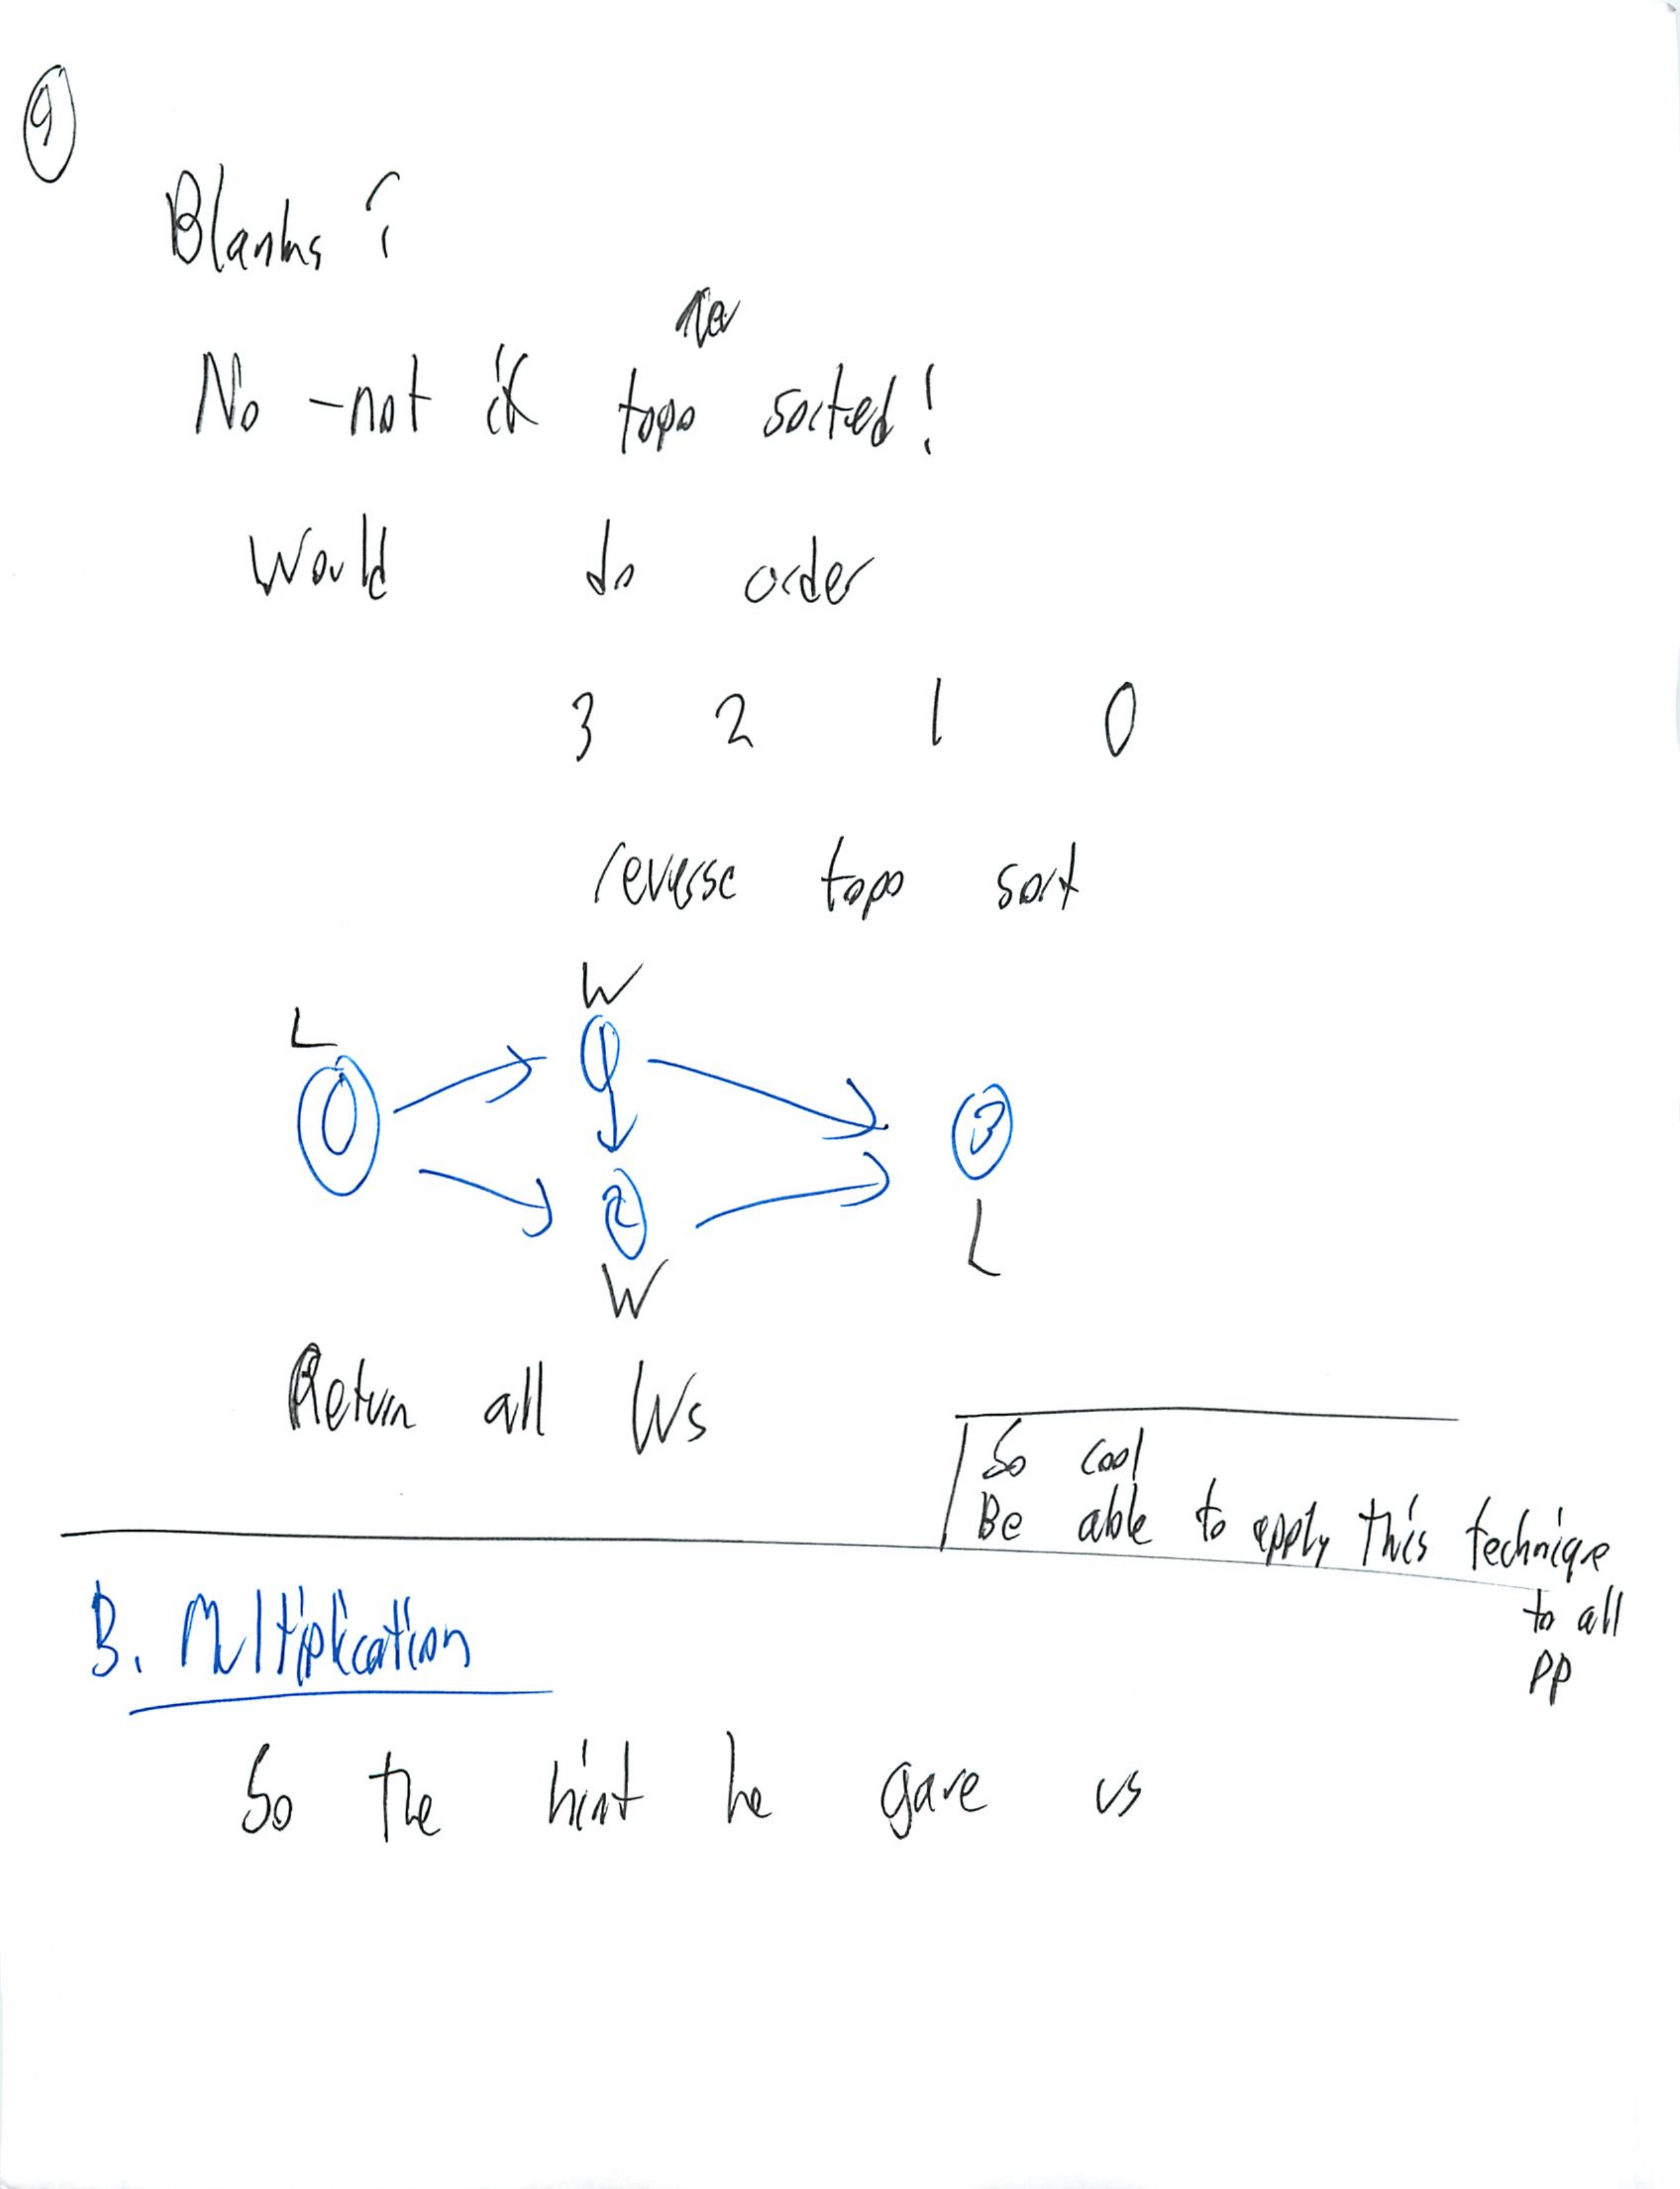 9
Blanks ?
rev
No - not if topo sorted!
Would do order
3 2 1 0
reverse topo sort
W
L
0 1 3
2
L
W
Return all Ws
So cool
Be able to apply this technique
to all
pp
B. Multiplication
So the hint he gave us